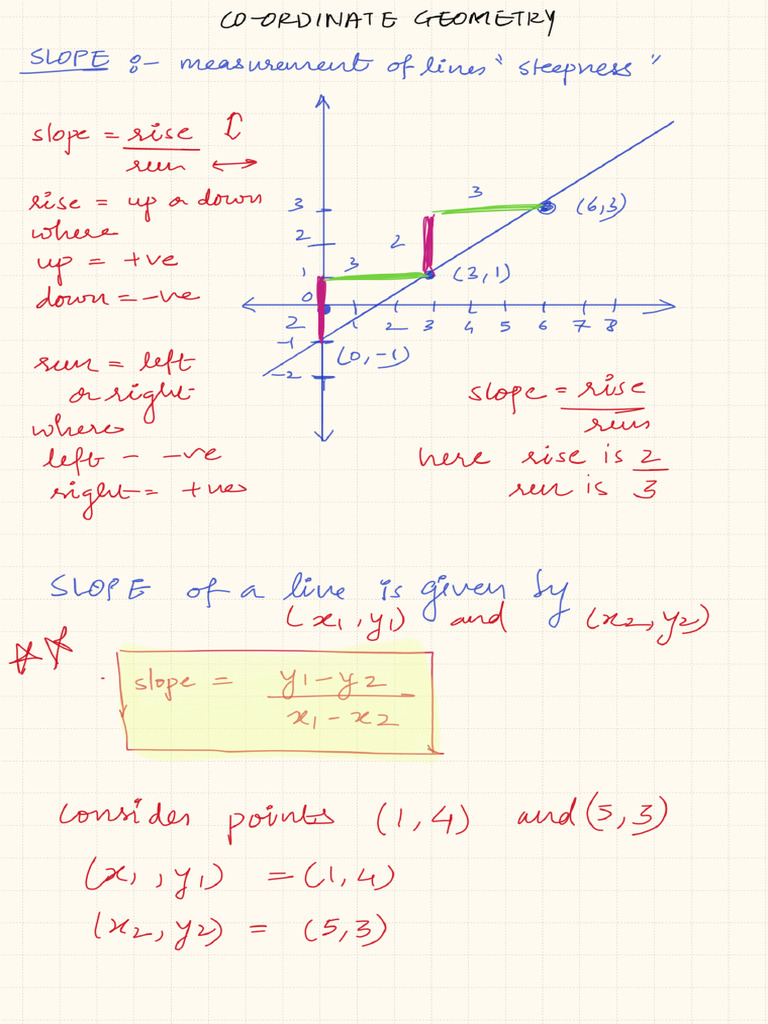 CO-ORDINATE GEOMETRY
SLOPE :- measurement of lines "steepness"
slope = rise
run
rise = up or down
where
up = +ve
down = -ve
run = left
or right
where
left - -ve
right = +ve
3
2
1
0
2
-1
-2
1 2 3 4 5 6 7 8
3
2
3
(6,3)
(3,1)
(0,-1)
slope = rise
run
here rise is 2
run is 3
SLOPE of a line is given by
(x1, y1) and (x2, y2)
slope = y1 - y2
x1 - x2
consider points (1,4) and (5,3)
(x1, y1) = (1,4)
(x2, y2) = (5,3)